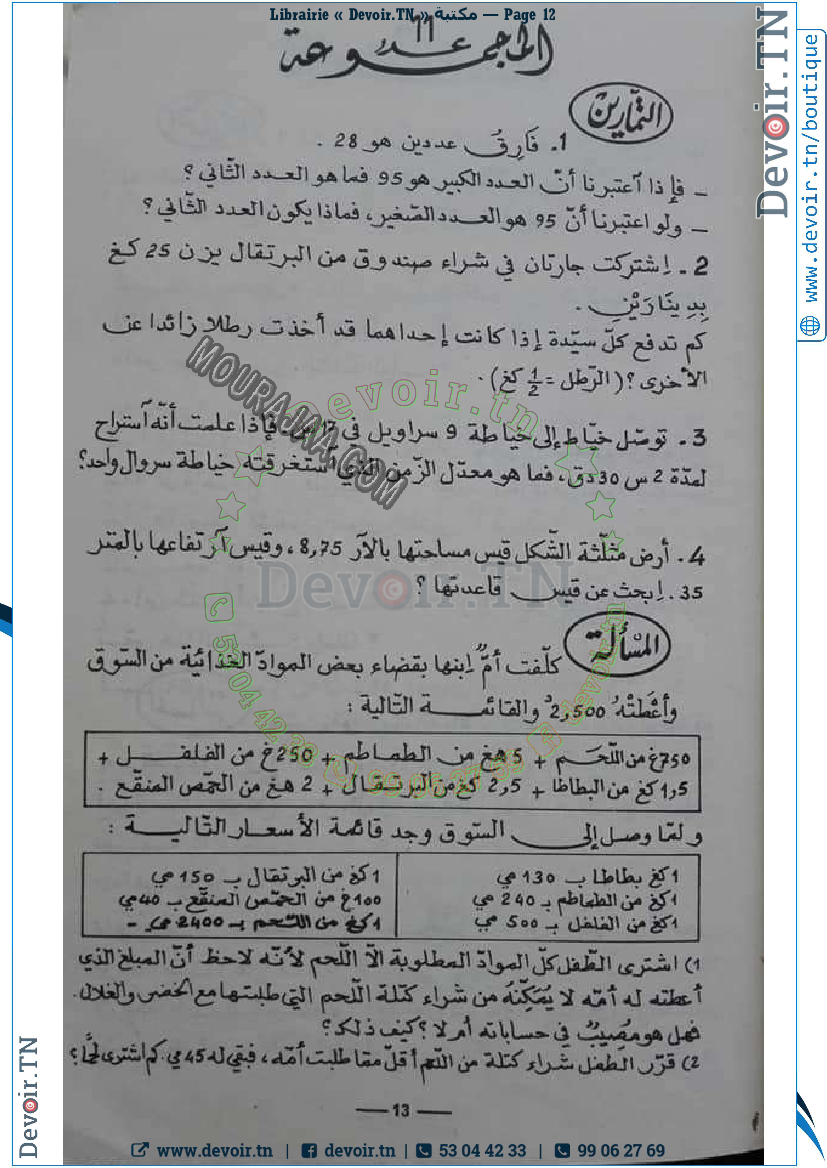 Librairie « Devoir.TN » مكتبة — Page 12
المجموعة عدد 11
التمارين
1. فَارِقُ عددين هو 28 .
– فإذا اعتبرنا أنّ العدد الكبير هو 95 فما هو العدد الثّاني ؟
– ولو اعتبرنا أنّ 95 هو العدد الصّغير، فماذا يكون العدد الثّاني ؟
2 . اِشتركت جارتان في شراء صندوق من البرتقال يزن 25 كغ
بِدِينَارَيْنِ .
كم تدفع كلّ سيّدة إذا كانت إحداهما قد أخذت رطلا زائدا عن
الأخرى ؟ ( الرّطل = 1/2 كغ) .
3 . توصّل خيّاط إلى خياطة 9 سراويل في 17 س. فإذا علمت أنّه آستراح
لمدّة 2 س 30 دق، فما هو معدّل الزّمن الذي آستغرقته خياطة سروال واحد؟
4 . أرض مثلّثة الشّكل قيس مساحتها بالآر 8,75 ، وقيس آرتفاعها بالمتر
35 . اِبحث عن قيس قاعدتها ؟
المسألة
كلّفت أمٌّ اِبنها بقضاء بعض الموادّ الغذائية من السّوق
وأعْطَتْهُ 2,500 د والقائمة التّالية :
750غ من اللّحم + 5 هغ من الطماطم + 250 غ من الفلفل +
1,5 كغ من البطاطا + 2,5 كغ من البرتقال + 2 هغ من الحمّص المنقّع .
ولمّا وصل إلى السّوق وجد قائمة الأسعار التّالية :
1 كغ بطاطا بـ 130 مي
1 كغ من الطماطم بـ 240 مي
1 كغ من الفلفل بـ 500 مي
1 كغ من البرتقال بـ 150 مي
100غ من الحمّص المنقّع بـ 40 مي
1 كغ من اللّحم بـ 2400 مي -
1) اشترى الطّفل كلّ الموادّ المطلوبة الاّ اللّحم لأنّه لاحظ أنّ المبلغ الذي
أعطته له أمّه لا يُمَكِّنُهُ من شراء كتلة اللّحم التي طلبتها مع الخضر والغلال.
فهل هو مُصِيبٌ في حساباته أم لا ؟ كيف ذلك ؟
2) قرّر الطّفل شراء كتلة من اللّحم أقلّ ممّا طلبت أمّه، فبقي له 45 مي. كم اشترى لحمًا ؟
— 13 —
MOURAJAA.COM
devoir.tn
Devoir.TN
53 04 42 33
99 06 27 69
devoir.tn
Devoir.TN
www.devoir.tn/boutique
Devoir.TN
www.devoir.tn | devoir.tn | 53 04 42 33 | 99 06 27 69